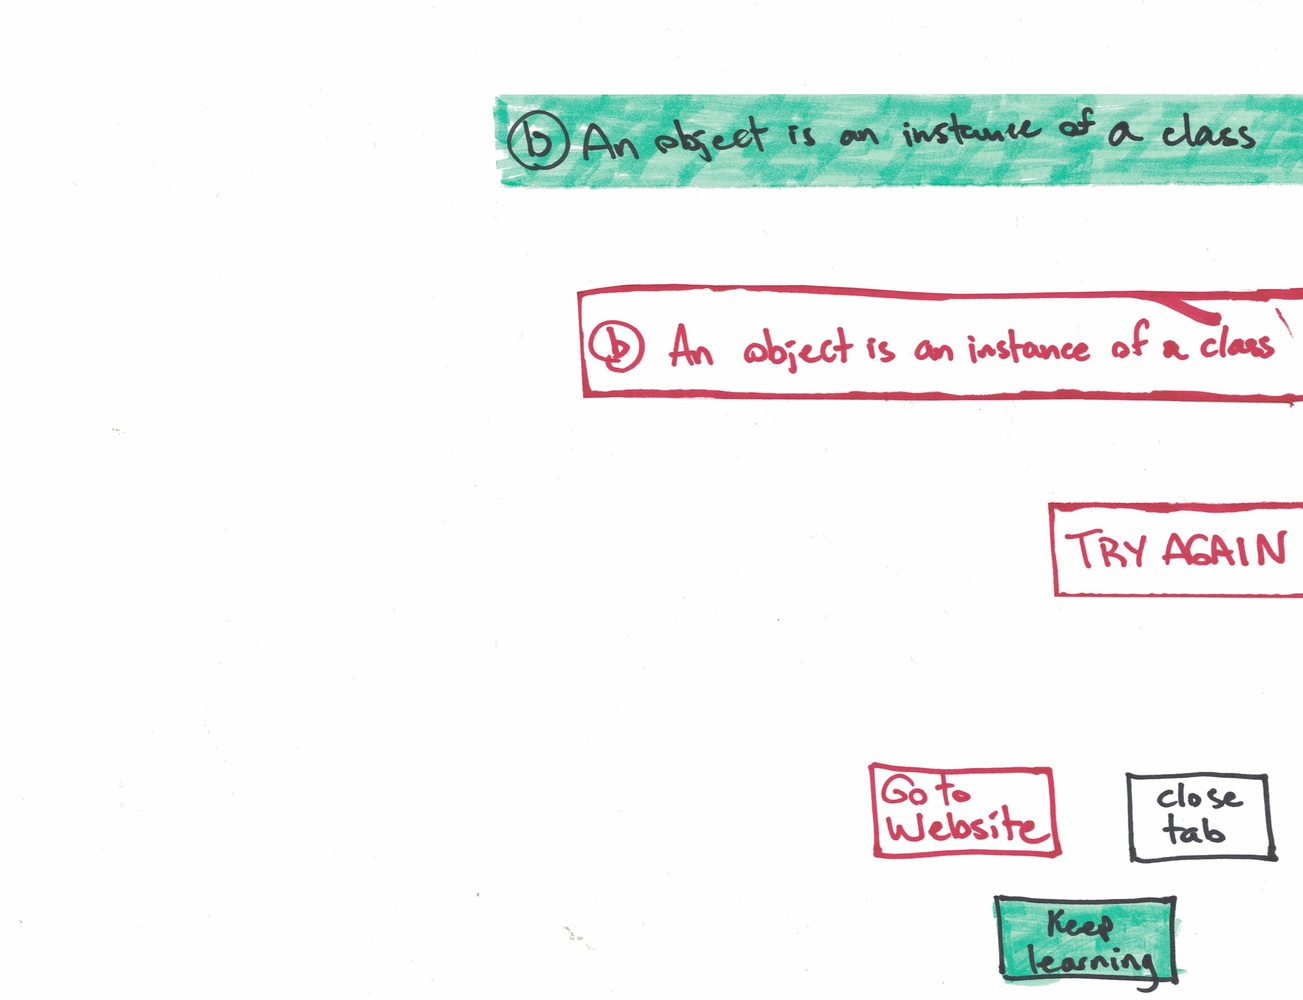 b An object is an instance of a class
b An object is an instance of a class
TRY AGAIN
Go to
Website
close
tab
Keep
learning